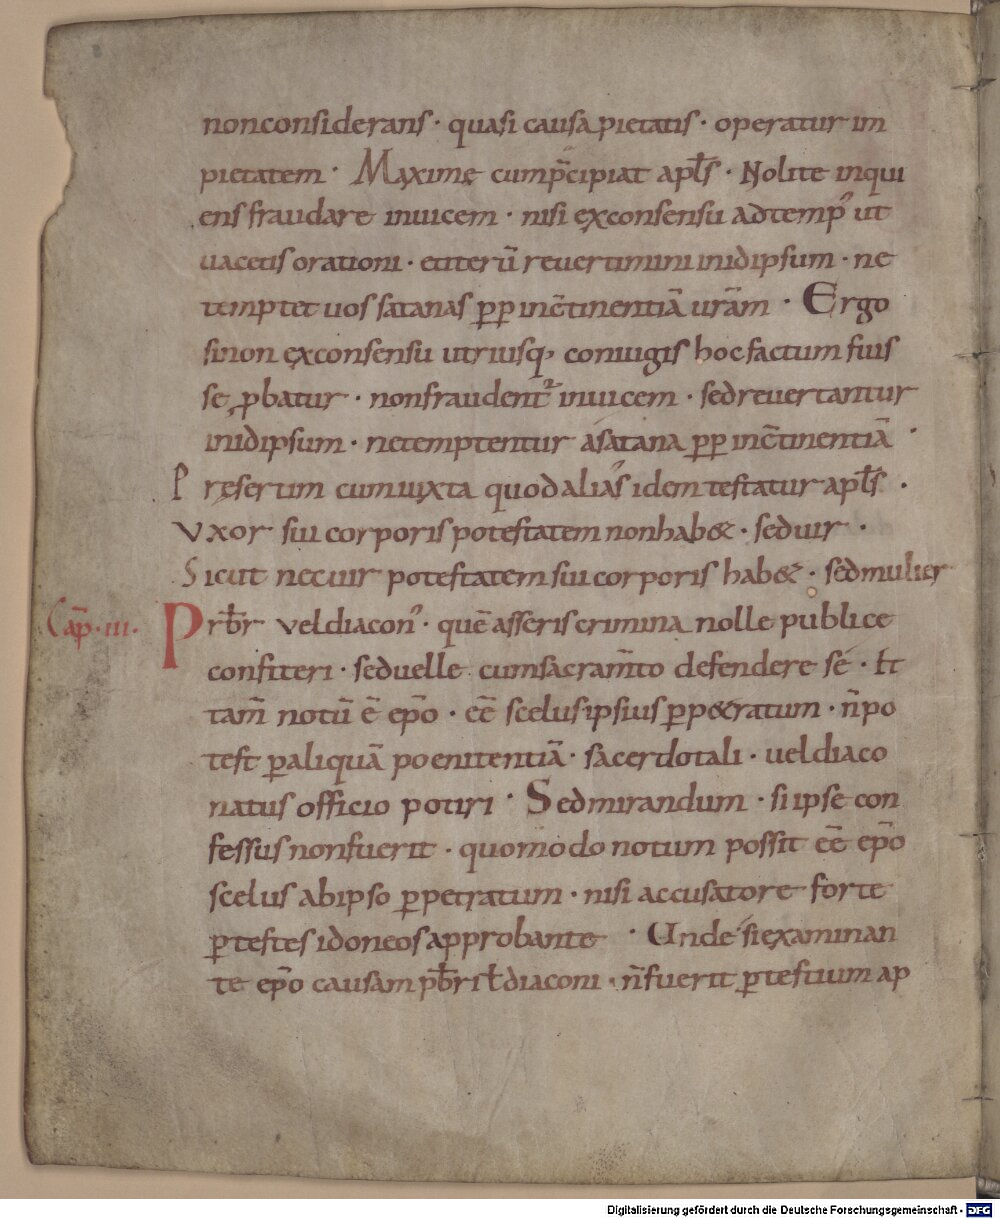 nonconsiderans · quasi causa pietatis · operatur im
pietatem · Maxime cump̄cipiat apl̄s · Nolite inqui
ens fraudare inuicem · nisi exconsensu adtemp᾽ ut
uacetis orationi · etiterū reuertimini inidipsum · ne
temptet uos satanas ꝑp inc̄tinentiā urām · Ergo
sinon exconsensu utriusq, coniugis hoc factum fuis
se, ꝓbatur · nonfraudent᷑ inuicem · sedreuertantur
inidipsum · netemptentur asatana ꝑp inc̄tinentiā ·
Pręsertim cumiuxta quod alias idem testatur apl̄s ·
Vxor sui corporis potestatem nonhab& · seduir ·
Sicut necuir potestatem sui corporis hab& · sedmulier
Cap̄ · III ·
Prb̄r vel diacon᾽ · quē asseris crimina nolle publice
confiteri · seduelle cumsacram̄to defendere sé · Et
tam̄ notū ē ep̄o · eē scelus ipsius ꝑp&ratum · n̄po
test ꝑaliquā poenitentiā · sacerdotali · uel diaco
natus officio potiri · Sedmirandum · si ipse con
fessus nonfuerit · quomodo notum possit eē ep̄o
scelus abipso ꝑpetratum · nisi accusatore forte
ꝑtestes idoneos approbante · Unde si examinan
te ep̄o causam pb̄ri ł diaconi · n̄fuerit ꝑtestium ap
Digitalisierung gefördert durch die Deutsche Forschungsgemeinschaft - DFG